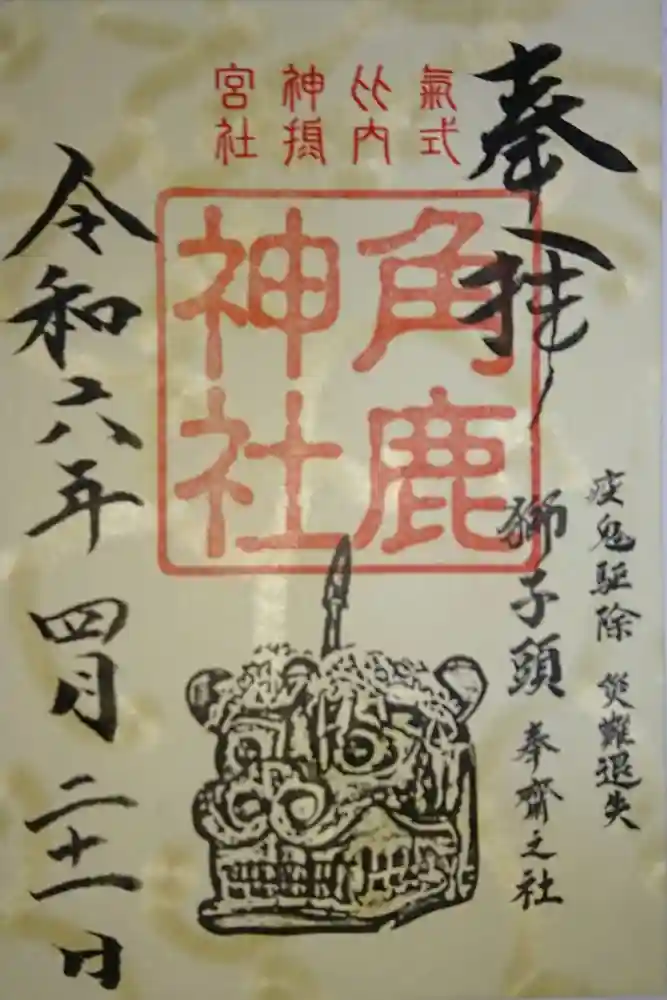 氣比神宮
式内摂社
奉拝
角鹿
神社
疫鬼駆除 災難退失
獅子頭 奉齋之社
令和六年 四月 二十一日